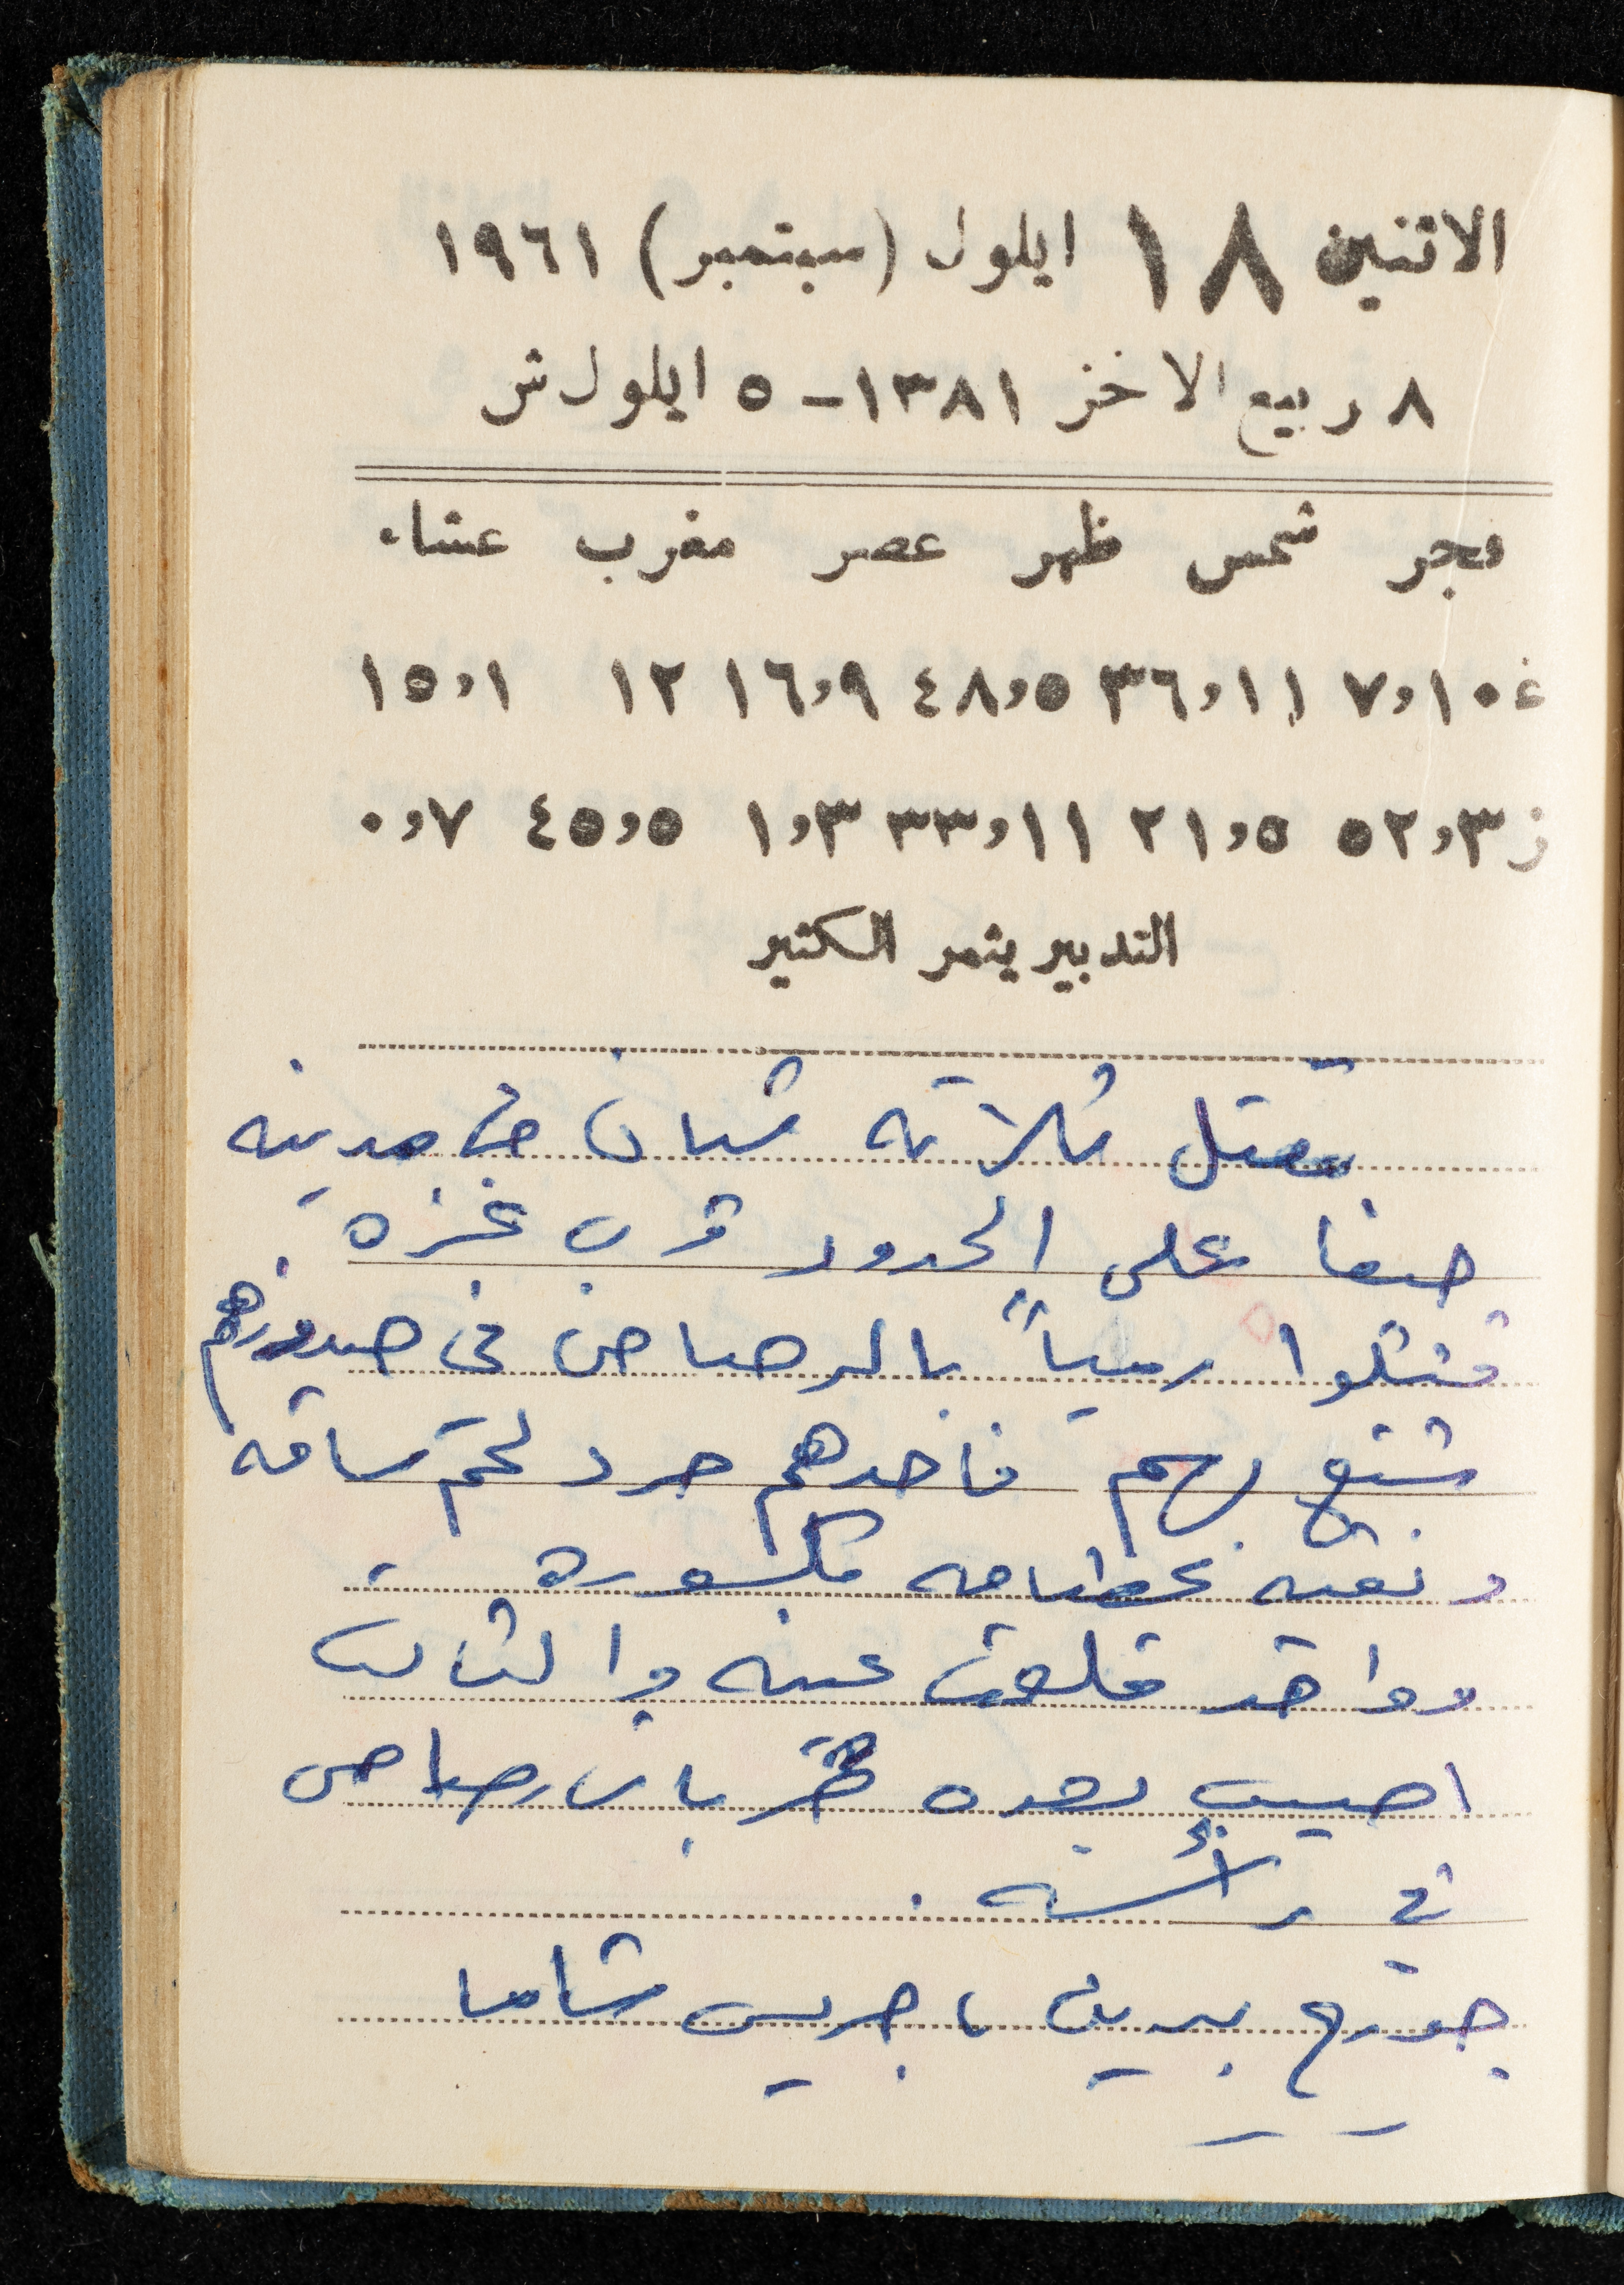 الاثنين ١٨ ايلول (سبتمبر) ١٩٦١
٨ ربيع الاخر ١٣٨١ - ٥ ايلول ش
فجر شمس ظهر عصر مغرب عشاء
غ ٧،١٠ ٣٦،١١ ٤٨،٥ ١٦،٩ ١٢ ١٥،١
ز ٥٢،٣ ٢١،٥ ٣٣،١١ ١،٣ ٤٥،٥ ٠،٧
التدبير يثمر الكثير
مقتل ثلاثة شبان من مدينة
حيفا على الحدود قرب غزة.
قتلوا رمياً بالرصاص في صدورهم
شنع بهم فاحدهم جرد لحم ساقه
وبقية عظامه مكسورة
وواحد قلعت عينه والثالث
اصيب بعده بالرصاص
في رأسه.
جورج ، جريس شاما